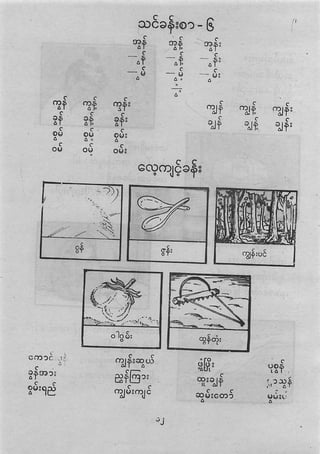 သင်ခန်းစာ - ၆
အွန် အွန့် အွန်း
—ွန် —ွန့် —ွန်း
—ွမ် —ွမ့် —ွမ်း
ကွန် ကွန့် ကွန်း ကျွန် ကျွန့် ကျွန်း
ခွန် ခွန့် ခွန်း ချွန် ချွန့် ချွန်း
စွမ် စွမ့် စွမ်း
ဝမ် ဝမ့် ဝမ်း
လေ့ကျင့်ခန်း
စွန် ဇွန်း ကျွန်းပင်
ဝါဂွမ်း ထွန်တုံး
ကောင်း ကျွန်းဆွယ် ဖွံ့ဖြိုး ပုစွန်
ခွန်အား ညွှန်ကြား ထူးချွန်
စွမ်းရည် ကျွမ်းကျင် ဆွမ်းတော်
၁၂